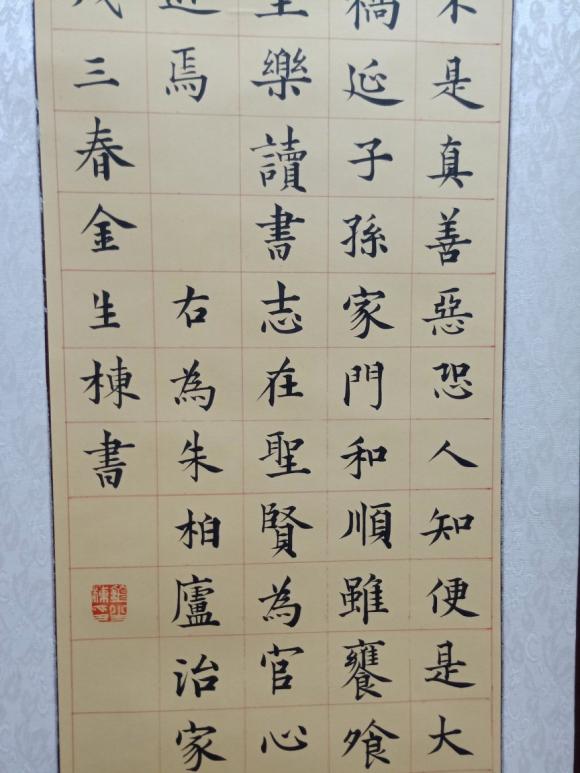 是真善惡恐人知便是大
禍延子孫家門和順雖饔飧
至樂讀書志在聖賢為官心
近焉 右為朱柏廬治家
三春金生棟書